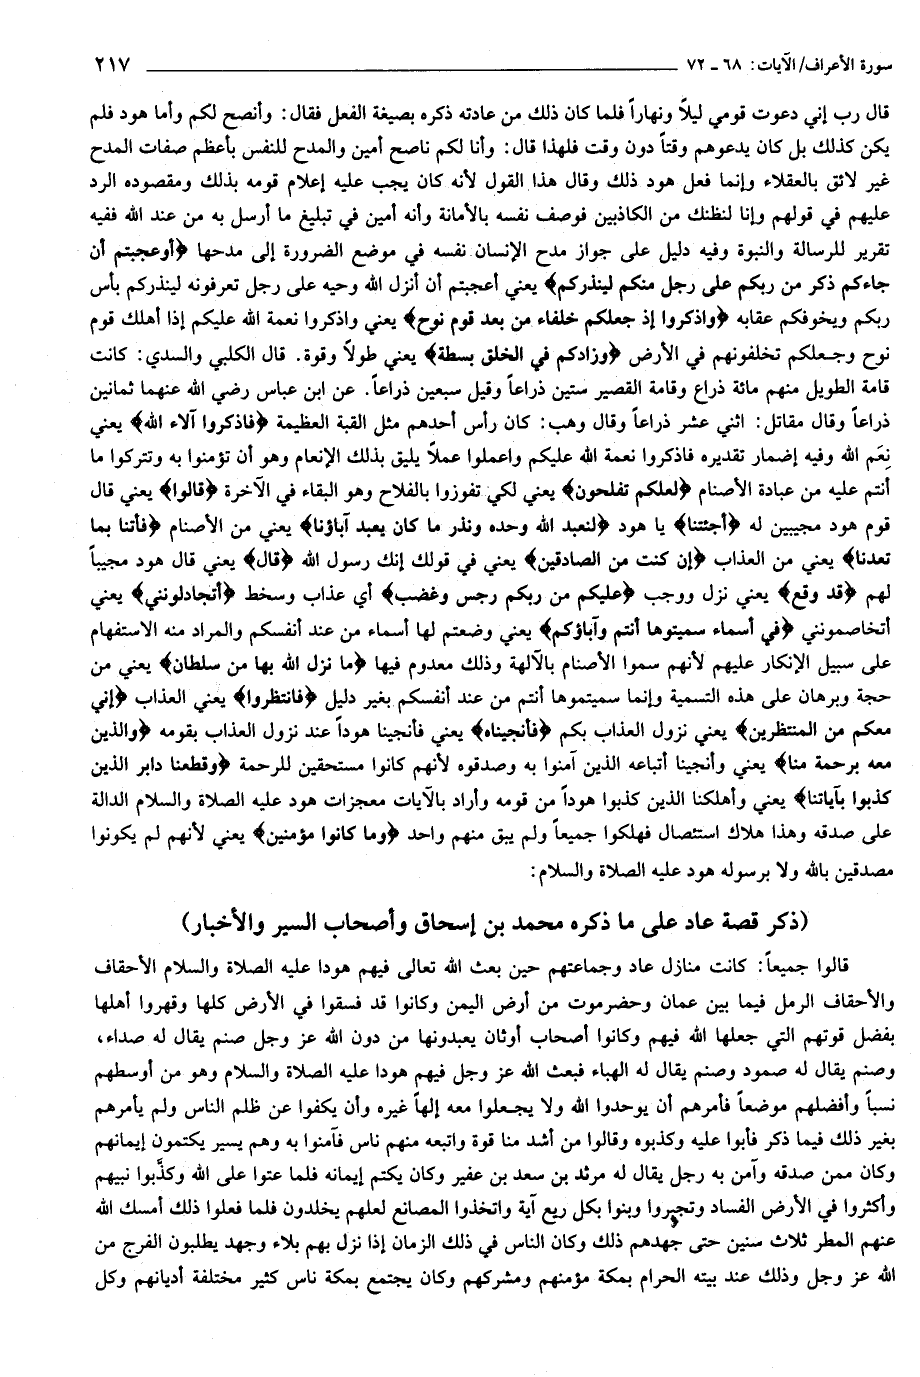 سورة الأعراف/ الآيات: ٦٨ ـ ٧٢ ٢١٧
قال رب إني دعوت قومي ليلاً ونهاراً فلما كان ذلك من عادته ذكره بصيغة الفعل فقال: وأنصح لكم وأما هود فلم
يكن كذلك بل كان يدعوهم وقتاً دون وقت فلهذا قال: وأنا لكم ناصح أمين والمدح للنفس بأعظم صفات المدح
غير لائق بالعقلاء وإنما فعل هود ذلك وقال هذا القول لأنه كان يجب عليه إعلام قومه بذلك ومقصوده الرد
عليهم في قولهم وإنا لنظنك من الكاذبين فوصف نفسه بالأمانة وأنه أمين في تبليغ ما أرسل به من عند الله ففيه
تقرير للرسالة والنبوة وفيه دليل على جواز مدح الإنسان نفسه في موضع الضرورة إلى مدحها ﴿أوعجبتم أن
جاءكم ذكر من ربكم على رجل منكم لينذركم﴾ يعني أعجبتم أن أنزل الله وحيه على رجل تعرفونه لينذركم بأس
ربكم ويخوفكم عقابه ﴿واذكروا إذ جعلكم خلفاء من بعد قوم نوح﴾ يعني واذكروا نعمة الله عليكم إذا أهلك قوم
نوح وجعلكم تخلفونهم في الأرض ﴿وزادكم في الخلق بسطة﴾ يعني طولاً وقوة. قال الكلبي والسدي: كانت
قامة الطويل منهم مائة ذراع وقامة القصير ستين ذراعاً وقيل سبعين ذراعاً. عن ابن عباس رضي الله عنهما ثمانين
ذراعاً وقال مقاتل: اثني عشر ذراعاً وقال وهب: كان رأس أحدهم مثل القبة العظيمة ﴿فاذكروا آلاء الله﴾ يعني
نِعَم الله وفيه إضمار تقديره فاذكروا نعمة الله عليكم واعملوا عملاً يليق بذلك الإنعام وهو أن تؤمنوا به وتتركوا ما
أنتم عليه من عبادة الأصنام ﴿لعلكم تفلحون﴾ يعني لكي تفوزوا بالفلاح وهو البقاء في الآخرة ﴿قالوا﴾ يعني قال
قوم هود مجيبين له ﴿أجئتنا﴾ يا هود ﴿لنعبد الله وحده ونذر ما كان يعبد آباؤنا﴾ يعني من الأصنام ﴿فأتنا بما
تعدنا﴾ يعني من العذاب ﴿إن كنت من الصادقين﴾ يعني في قولك إنك رسول الله ﴿قال﴾ يعني قال هود مجيباً
لهم ﴿قد وقع﴾ يعني نزل ووجب ﴿عليكم من ربكم رجس وغضب﴾ أي عذاب وسخط ﴿أتجادلونني﴾ يعني
أتخاصمونني ﴿في أسماء سميتوها أنتم وآباؤكم﴾ يعني وضعتم لها أسماء من عند أنفسكم والمراد منه الاستفهام
على سبيل الإنكار عليهم لأنهم سموا الأصنام بالآلهة وذلك معدوم فيها ﴿ما نزل الله بها من سلطان﴾ يعني من
حجة وبرهان على هذه التسمية وإنما سميتموها أنتم من عند أنفسكم بغير دليل ﴿فانتظروا﴾ يعني العذاب ﴿إني
معكم من المنتظرين﴾ يعني نزول العذاب بكم ﴿فأنجيناه﴾ يعني فأنجينا هوداً عند نزول العذاب بقومه ﴿والذين
معه برحمة منا﴾ يعني وأنجينا أتباعه الذين آمنوا به وصدقوه لأنهم كانوا مستحقين للرحمة ﴿وقطعنا دابر الذين
كذبوا بآياتنا﴾ يعني وأهلكنا الذين كذبوا هوداً من قومه وأراد بالآيات معجزات هود عليه الصلاة والسلام الدالة
على صدقه وهذا هلاك استئصال فهلكوا جميعاً ولم يبق منهم واحد ﴿وما كانوا مؤمنين﴾ يعني لأنهم لم يكونوا
مصدقين بالله ولا برسوله هود عليه الصلاة والسلام:
(ذكر قصة عاد على ما ذكره محمد بن إسحاق وأصحاب السير والأخبار)
قالوا جميعاً: كانت منازل عاد وجماعتهم حين بعث الله تعالى فيهم هودا عليه الصلاة والسلام الأحقاف
والأحقاف الرمل فيما بين عمان وحضرموت من أرض اليمن وكانوا قد فسقوا في الأرض كلها وقهروا أهلها
بفضل قوتهم التي جعلها الله فيهم وكانوا أصحاب أوثان يعبدونها من دون الله عز وجل صنم يقال له صداء،
وصنم يقال له صمود وصنم يقال له الهباء فبعث الله عز وجل فيهم هودا عليه الصلاة والسلام وهو من أوسطهم
نسباً وأفضلهم موضعاً فأمرهم أن يوحدوا الله ولا يجعلوا معه إلهاً غيره وأن يكفوا عن ظلم الناس ولم يأمرهم
بغير ذلك فيما ذكر فأبوا عليه وكذبوه وقالوا من أشد منا قوة واتبعه منهم ناس فآمنوا به وهم يسير يكتمون إيمانهم
وكان ممن صدقه وآمن به رجل يقال له مرثد بن سعد بن عفير وكان يكتم إيمانه فلما عتوا على الله وكذَّبوا نبيهم
وأكثروا في الأرض الفساد وتجبروا وبنوا بكل ريع آية واتخذوا المصانع لعلهم يخلدون فلما فعلوا ذلك أمسك الله
عنهم المطر ثلاث سنين حتى جهدهم ذلك وكان الناس في ذلك الزمان إذا نزل بهم بلاء وجهد يطلبون الفرج من
الله عز وجل وذلك عند بيته الحرام بمكة مؤمنهم ومشركهم وكان يجتمع بمكة ناس كثير مختلفة أديانهم وكل